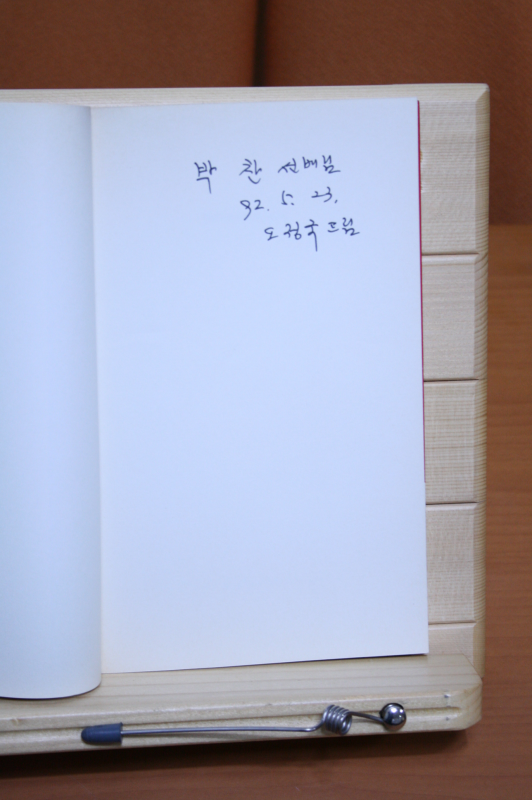 박 찬 선배님
92. 5. 23.
드림